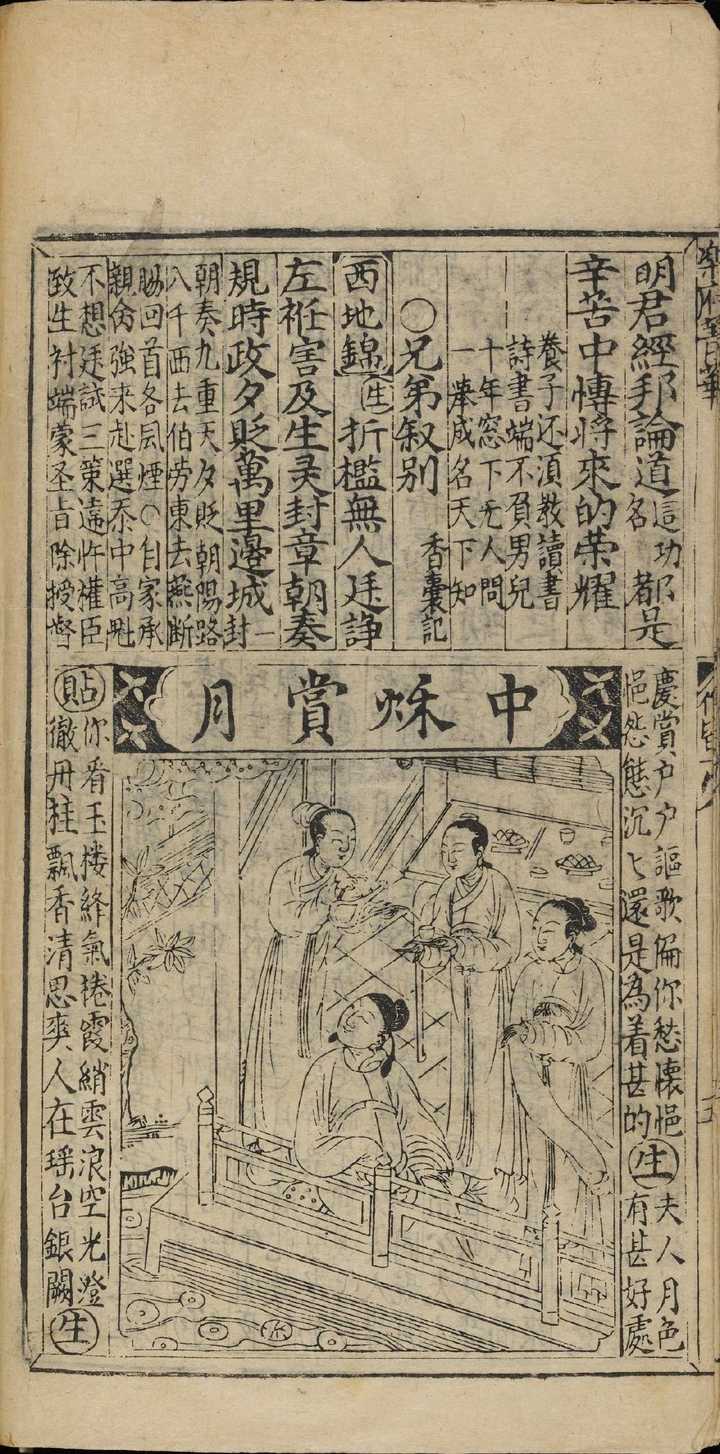 明君經邦論道這功名都是
辛苦中愽將來的荣耀
養子还須教讀書
詩書端不負男兒
十年窓下无人問
一舉成名天下知
○兄弟叙别
香囊記
西地錦
生
折檻無人廷諍
左衽害及生灵封章朝奏
規時政夕貶萬里邊城
一封
朝奏九重天夕貶朝陽路
八千西去伯劳東去燕断
賜回首各風煙○自家承
親命強來赴選忝中高魁
不想廷試三策違忤權臣
致生衬端蒙圣旨除授督
慶賞戶戶謳歌偏你愁懷悒
悒怨態沉匕還是為着甚的
生
夫人月色
有甚好處
中秌賞月
貼
你看玉楼絳氣捲霞綃雲浪空光澄
徹丹桂飄香清思爽人在瑶台銀闕
生